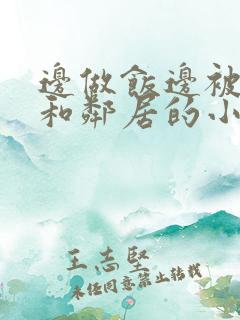 邊做飯邊被
和鄰居的小
王志堅
未经同意禁止转载